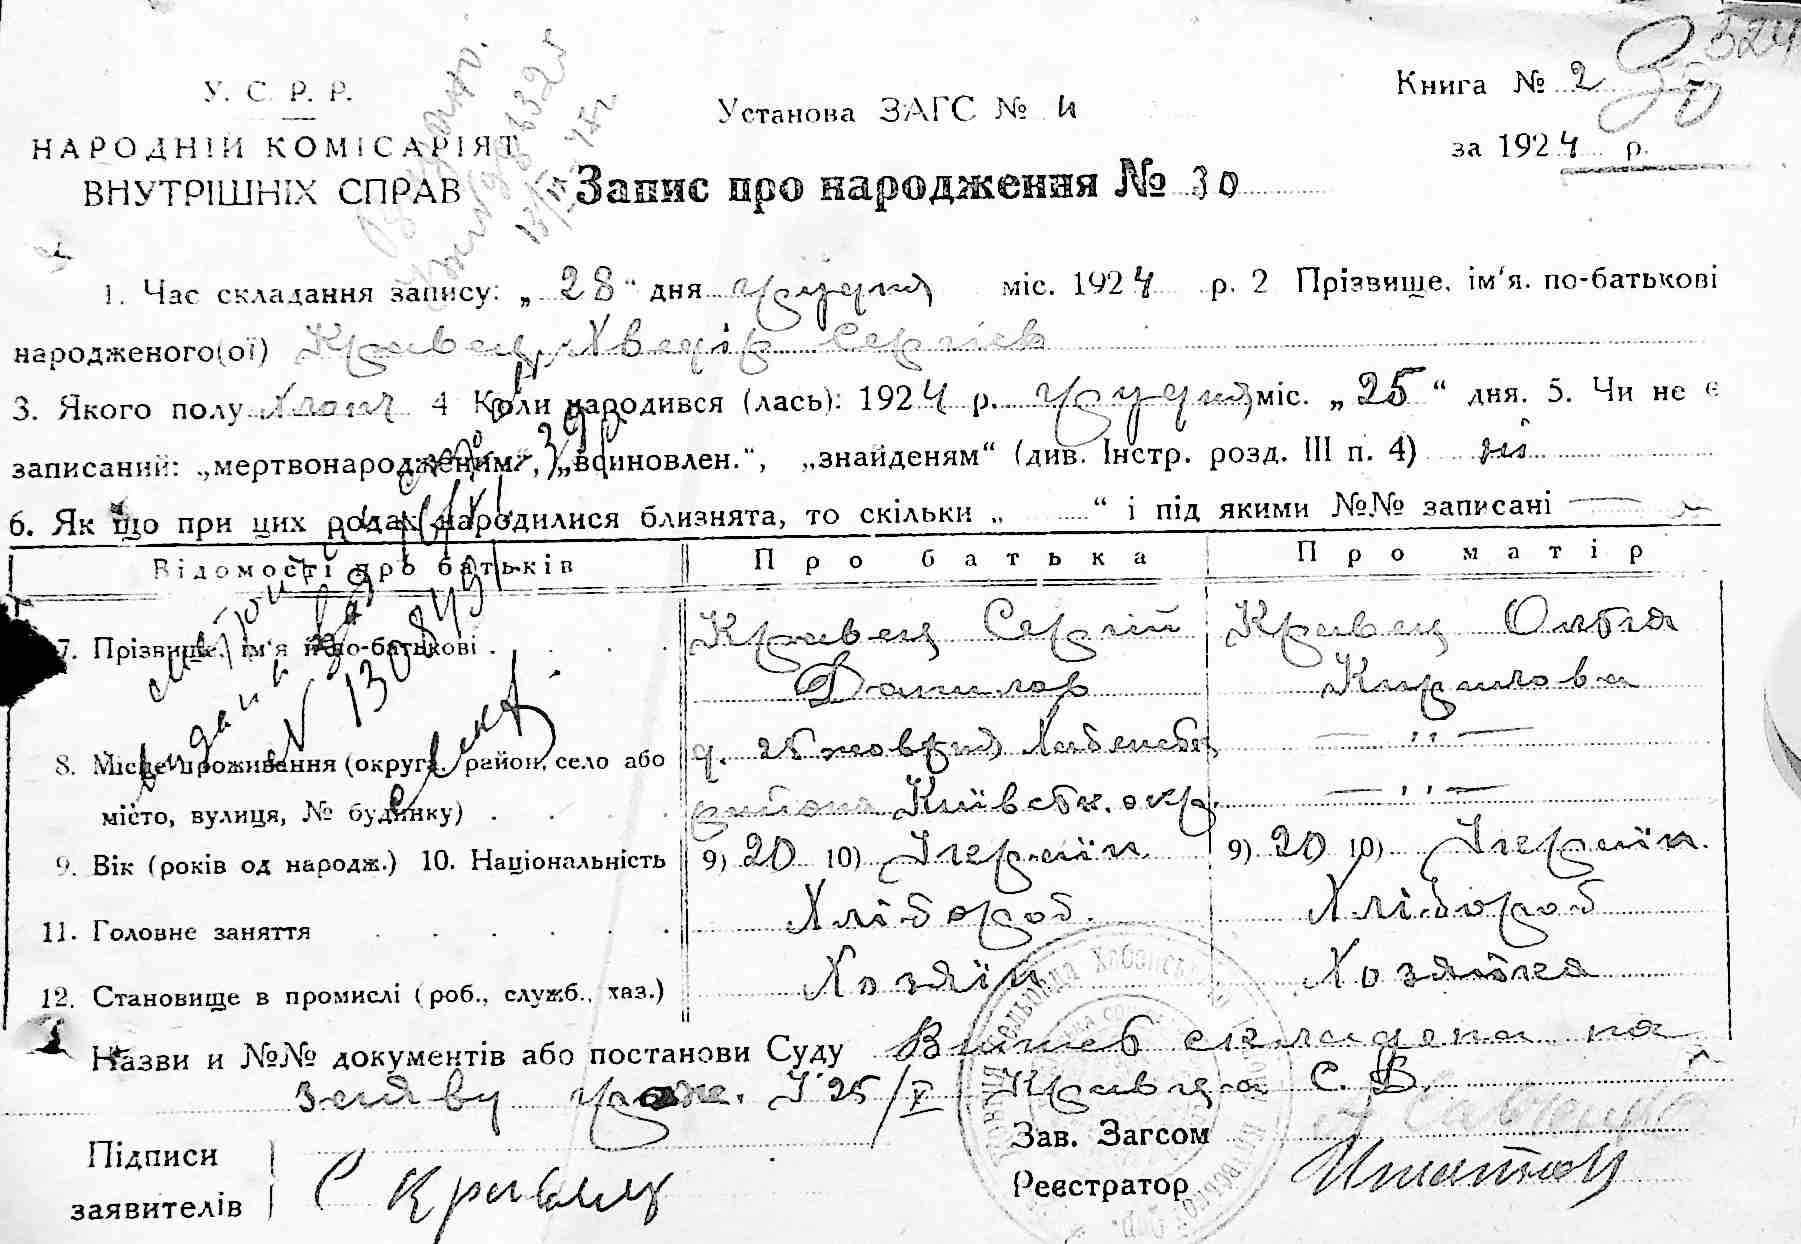 Книга № 2
324
У. С. Р. Р.
Установа ЗАГС № 4
за 1924 р.
НАРОДНІЙ КОМІСАРІЯТ
ВНУТРІШНІХ СПРАВ
Запис про народження № 30
1. Час складання запису: „ 28 “ дня грудня міс. 1924 р. 2 Прізвище, ім'я. по-батькові
народженого(ої) Кравец Хведір Сергіев
3. Якого полу Хлопч 4 Коли народився (лась): 1924 р. грудня міс. „ 25 “ дня. 5. Чи не є
записаний: „мертвонародженим“, „всиновлен.“, „знайденям“ (див. Інстр. розд. III п. 4) ні
6. Як що при цих родах народилися близнята, то скільки „ “ і під якими №№ записані —
Відомості про батьків Про батька Про матір
7. Прізвище, ім'я й по-батькові . . . . Кравец Сергій Кравец Ольга
Данилов Кирилова
8. Місце проживання (округа, район, село або
місто, вулиця, № будинку) . . . . району Київськ. окр. — ,, —
9. Вік (років од народж.) 10. Національність 9) 20 10) Украін. 9) 20 10) Украін.
11. Головне заняття . . . . . . Хлібороб. Хлібороб
12. Становище в промислі (роб., служб., хаз.) Хозяїн Хозяйка
Назви и №№ документів або постанови Суду складена на
заяву грож. Кравця С. Д.
Підписи
заявителів
С Кравец
Зав. Загсом
Реєстратор
видан
№ 1308491